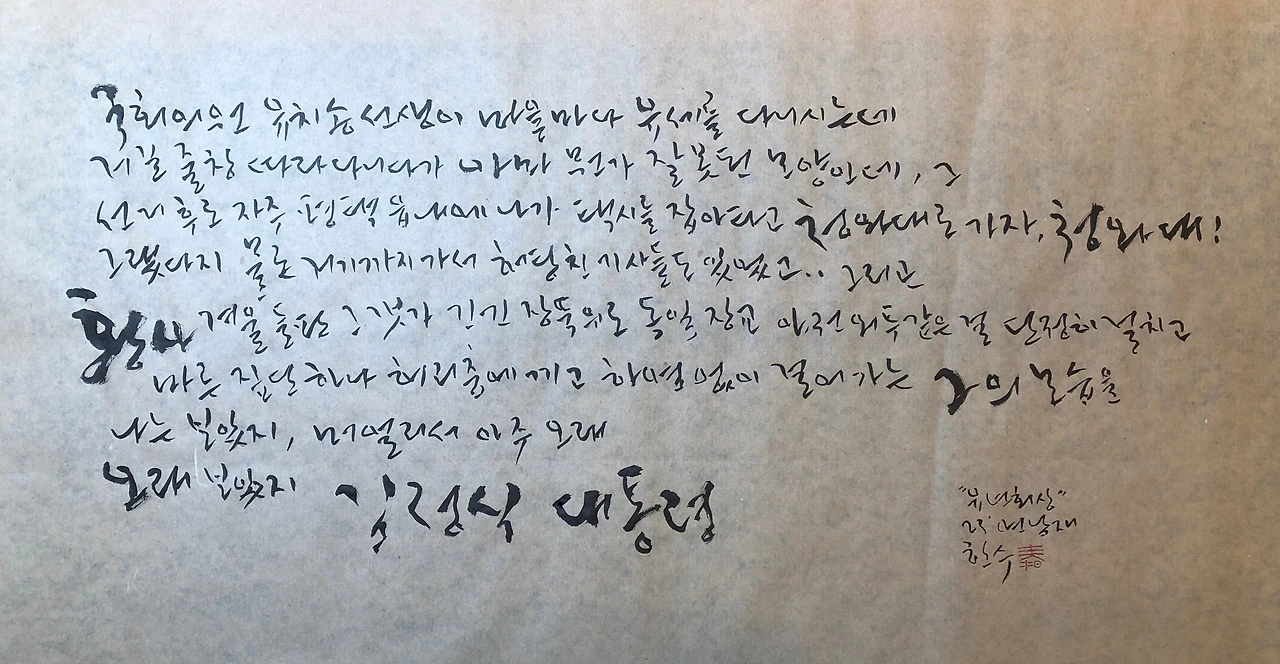 국회의원 유치송 선생이 마을마다 유세를 다니시는데
거길 줄창 따라다니다가 아마 뭔가 잘못된 모양인데, 그
선거 후로 자주 평택 읍내에 나가 택시를 잡아타고 청와대로 가자, 청와대!
그랬다지 물론 거기까지 가서 허탕친 기사들도 있었고.. 그리고
황사 겨울 들판 그 갯가 긴긴 장뚝 위로 독일 장교 야전 외투 같은 걸 단정히 걸치고
마른 짚단 하나 허리춤에 끼고 하염없이 걸어가는 그의 모습을
나는 보았지, 머얼리서 아주 오래
오래 보았지 김정식 대통령
"유년회상"
25' 연남재
한수